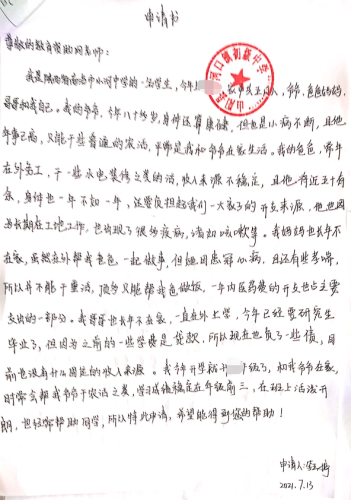 申请书
尊敬的教育资助网老师:
我是陕西省商洛市山阳中学的一名学生,今年 家中共五口人,爷爷,爸爸妈妈,
哥哥和我自己。我的爷爷,今年八十多岁,身体还算康健,但也是小病不断,且他
年事已高,只能干些普通的农活,平常是我和爷爷在家生活。我的爸爸,常年
在外务工,干一些水电装修之类的活,收入来源不稳定,且他有近五十有
余,身体也一年不如一年,还需负担起我们一大家子的开支来源,他也因
为长期在工地工作,也出现了很多疾病,诸如咳嗽等。我妈妈也长年不
在家,虽然在外帮我爸爸一起做事,但她因患冠心病,且还有些
所以并不能干重活,顶多只能帮我爸做饭,一年内医药费的开支也占主要
支出的一部分。我哥哥也长年不在家,一直在外上学,今年已经要研究生
毕业了,但因为之前的一些学费是贷款,所以现在也负了一些债,目
前也没有什么固定的收入来源。我今年开学就 年级了,和我爷爷在家,
时常会帮我爷爷干农活之类,学习成绩稳定在年级前三,在班上活泼开
朗,也经常帮助同学,所以特此申请,希望能得到您的帮助!
申请人:
2021.7.13
河口镇初级中学
山阳县